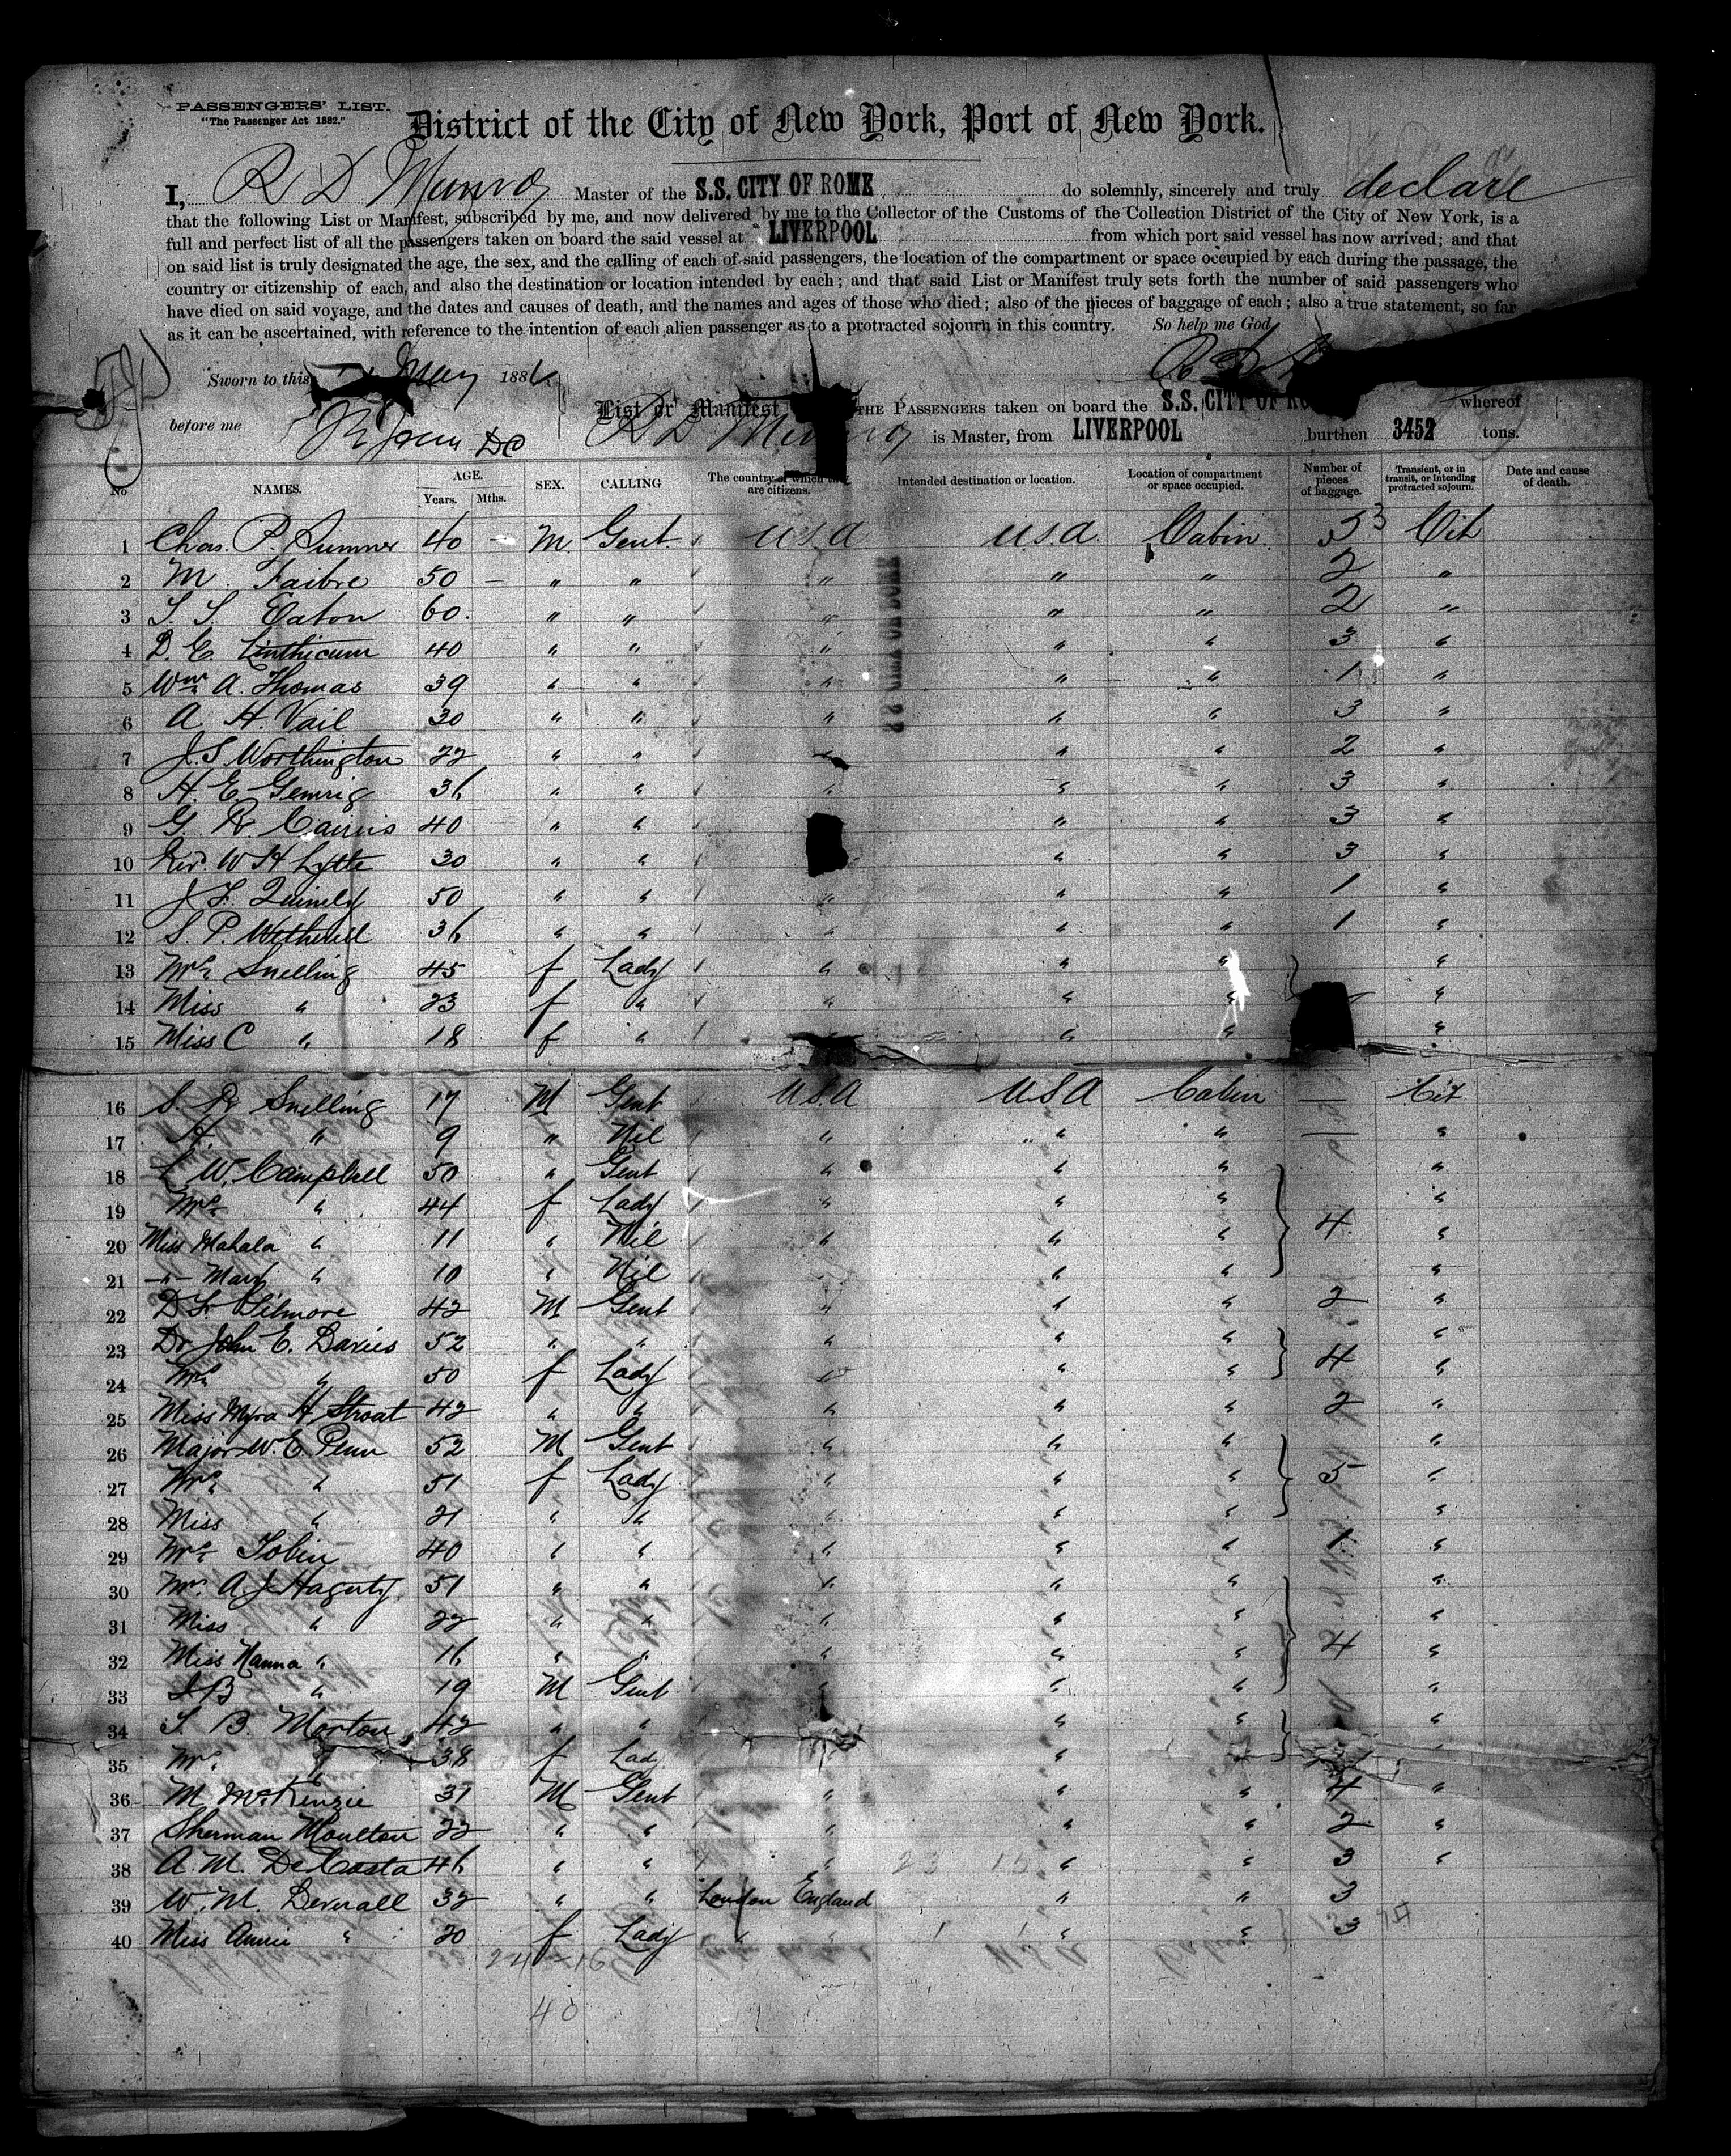 PASSENGERS' LIST.
"The Passenger Act 1882."
District of the City of New York, Port of New York.
I, R D Munro Master of the S.S. CITY OF ROME do solemnly, sincerely and truly declare
that the following List or Manifest, subscribed by me, and now delivered by me to the Collector of the Customs of the Collection District of the City of New York, is a
full and perfect list of all the passengers taken on board the said vessel at LIVERPOOL from which port said vessel has now arrived; and that
on said list is truly designated the age, the sex, and the calling of each of said passengers, the location of the compartment or space occupied by each during the passage, the
country or citizenship of each, and also the destination or location intended by each; and that said List or Manifest truly sets forth the number of said passengers who
have died on said voyage, and the dates and causes of death, and the names and ages of those who died; also of the pieces of baggage of each; also a true statement, so far
as it can be ascertained, with reference to the intention of each alien passenger as to a protracted sojourn in this country. So help me God
Sworn to this May 188
List or Manifest THE PASSENGERS taken on board the S.S. CITY OF RO whereof
before me R D Munro is Master, from LIVERPOOL burthen 3452 tons.
No NAMES. AGE. Years. Mths. SEX. CALLING The country of which they are citizens. Intended destination or location. Location of compartment or space occupied. Number of pieces of baggage. Transient, or in transit, or intending protracted sojourn. Date and cause of death.
1 Chas. P. Sumner 40 - M. Gent. U.S.A U.S.A. Cabin 3 Cit
2 M. Faibre 50 - " " " " " 2 "
3 S. S. Eaton 60. " " " " " 2 "
4 D. E. Linthicum 40 " " " " " 3 "
5 Wm A. Thomas 39 " " " " " 1 "
6 A H. Vail 30 " " " " " 3 "
7 J. S Worthington 22 " " " " " 2 "
8 H. E. Gemrig 36 " " " " " 3 "
9 G. R. Cairns 40 " " " " 3 "
10 Rev. W H Lytte 30 " " " " 3 "
11 J. F. Quimby 50 " " " " " 1 "
12 S. P. Wetherill 36 " " " " " 1 "
13 Mrs Snelling 45 f Lady " " " "
14 Miss " 23 f " " " " "
15 Miss C " 18 f " " " "
16 S. R Snelling 17 M Gent U.S.A U.S.A Cabin — Cit
17 H. " 9 " Nil " " " — "
18 L W. Campbell 50 " Gent " " " "
19 Mrs " 44 f Lady " " " "
20 Miss Mahala " 11 " Nil " " " 4 "
21 -"- Mary " 10 " Nil " " " "
22 D. F. Gilmore 42 M Gent " " " 2 "
23 Dr John E. Davies 52 " " " " " "
24 Mrs " 50 f Lady " " " 4 "
25 Miss Myra H Stroat 42 " " " " " 2 "
26 Major W. E. Penn 52 M Gent " " " "
27 Mrs " 51 f Lady " " " 5 "
28 Miss " 21 " " " " " "
29 Mrs Tobin 40 " " " " " 1 "
30 Mrs A J Hagerty 51 " " " " " "
31 Miss " 22 " " " " " "
32 Miss Nanna " 16 " " " " " 4 "
33 J B " 19 M Gent " " " "
34 S. B. Morton 42 " " " " "
35 Mrs 38 f Lad " " "
36 M McKenzie 31 M Gent " " " 4 "
37 Sherman Moulton 22 " " " " " 2 "
38 A. M. DeCosta 46 " " " " " 3 "
39 W. M. Bernall 32 " " London England " " 3
40 Miss Annie " 20 f Lady " " " 3
24 16
40